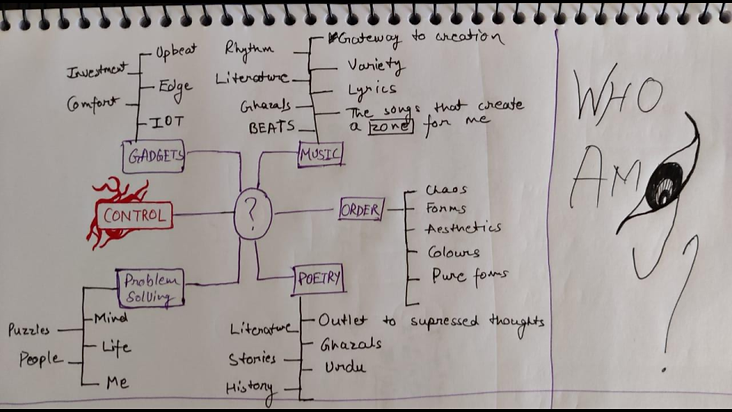 Upbeat
Investment
Edge
Comfort
IOT
GADGETS
Rhythm
Literature
Ghazals
BEATS
Gateway to creation
Variety
Lyrics
The songs that create
a zone for me
MUSIC
CONTROL
?
ORDER
Chaos
Forms
Aesthetics
Colours
Pure forms
Problem
Solving
Puzzles
Mind
People
Life
Me
POETRY
Literature
Stories
History
Outlet to supressed thoughts
Ghazals
Urdu
WHO
AM
?